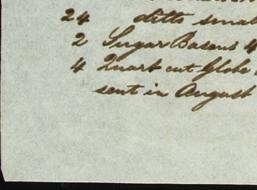 24 ditto small
2 Sugar Basons 4
4 Quart cut Globe
sent in August